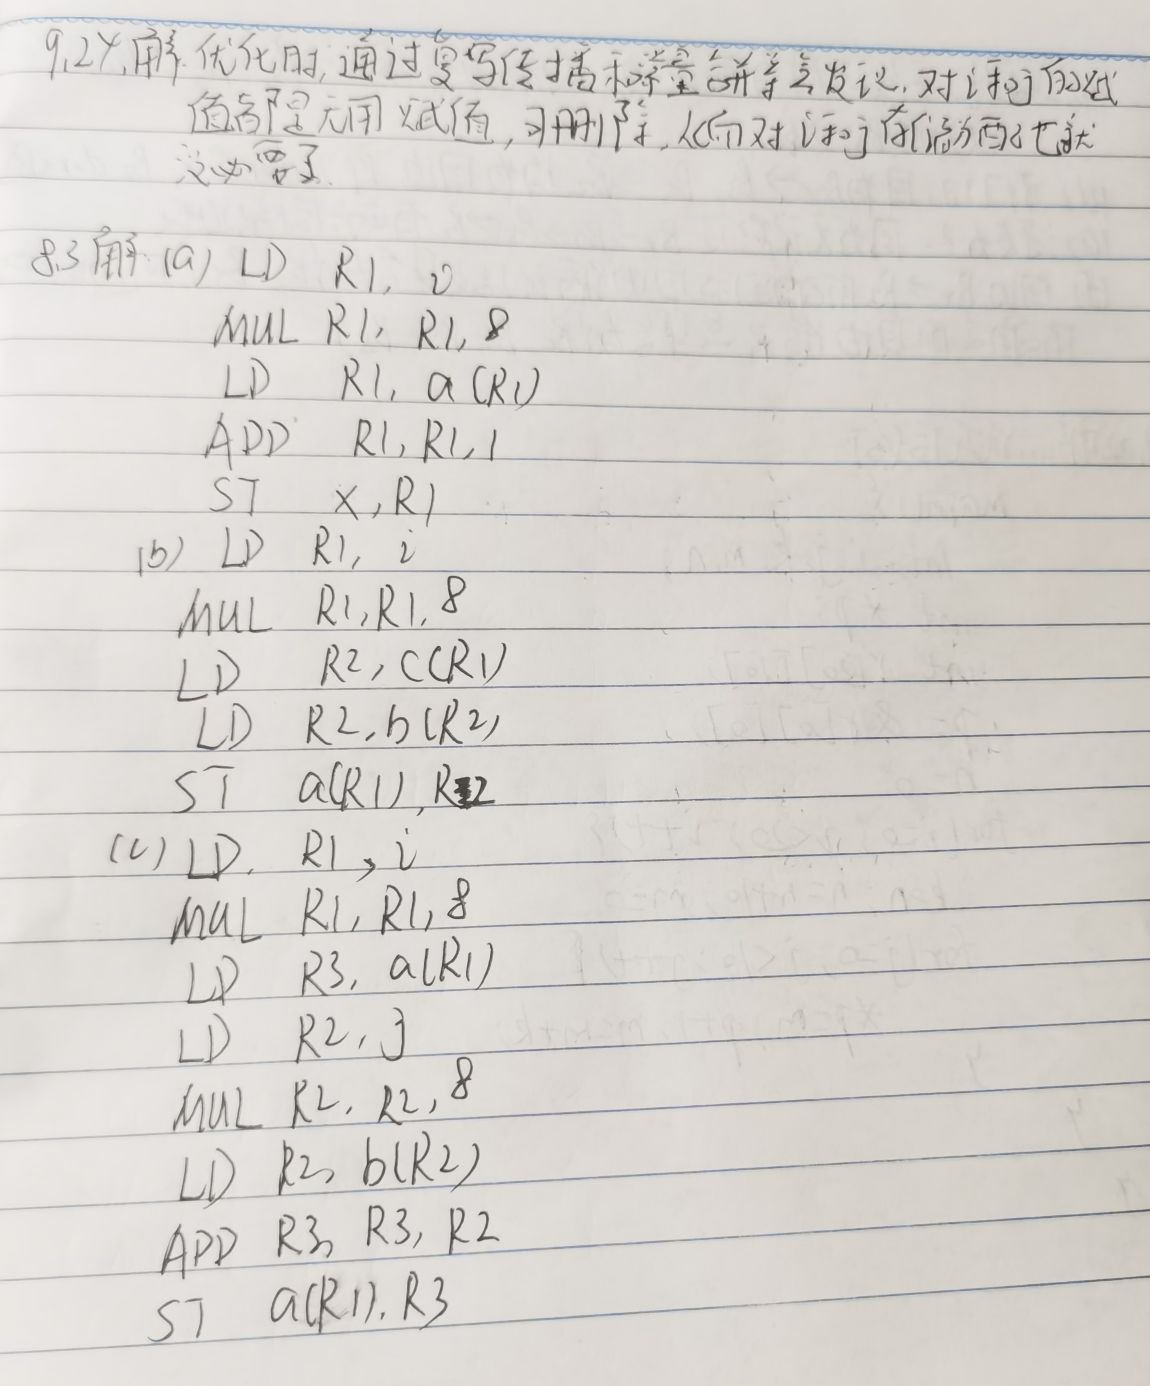 9.24.解.优化时,通过复写传播和常量合并等会发现,对i和j的赋
值都是无用赋值,可删除,从而对i和j存储分配也就
没必要了.
8.3 解 (a) LD R1, i
MUL R1, R1, 8
LD R1, a(R1)
ADD R1, R1, 1
ST x, R1
(b) LD R1, i
MUL R1, R1, 8
LD R2, c(R1)
LD R2, b(R2)
ST a(R1), R2
(c) LD. R1, i
MUL R1, R1, 8
LD R3, a(R1)
LD R2, j
MUL R2, R2, 8
LD R2, b(R2)
ADD R3, R3, R2
ST a(R1), R3